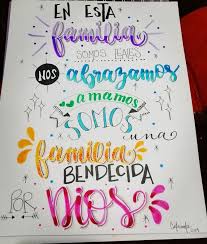 EN ESTA
familia
SOMOS LEALES
NOS abrazamos
amamos
SOMOS
una
familia
BENDECIDA
POR
Dios